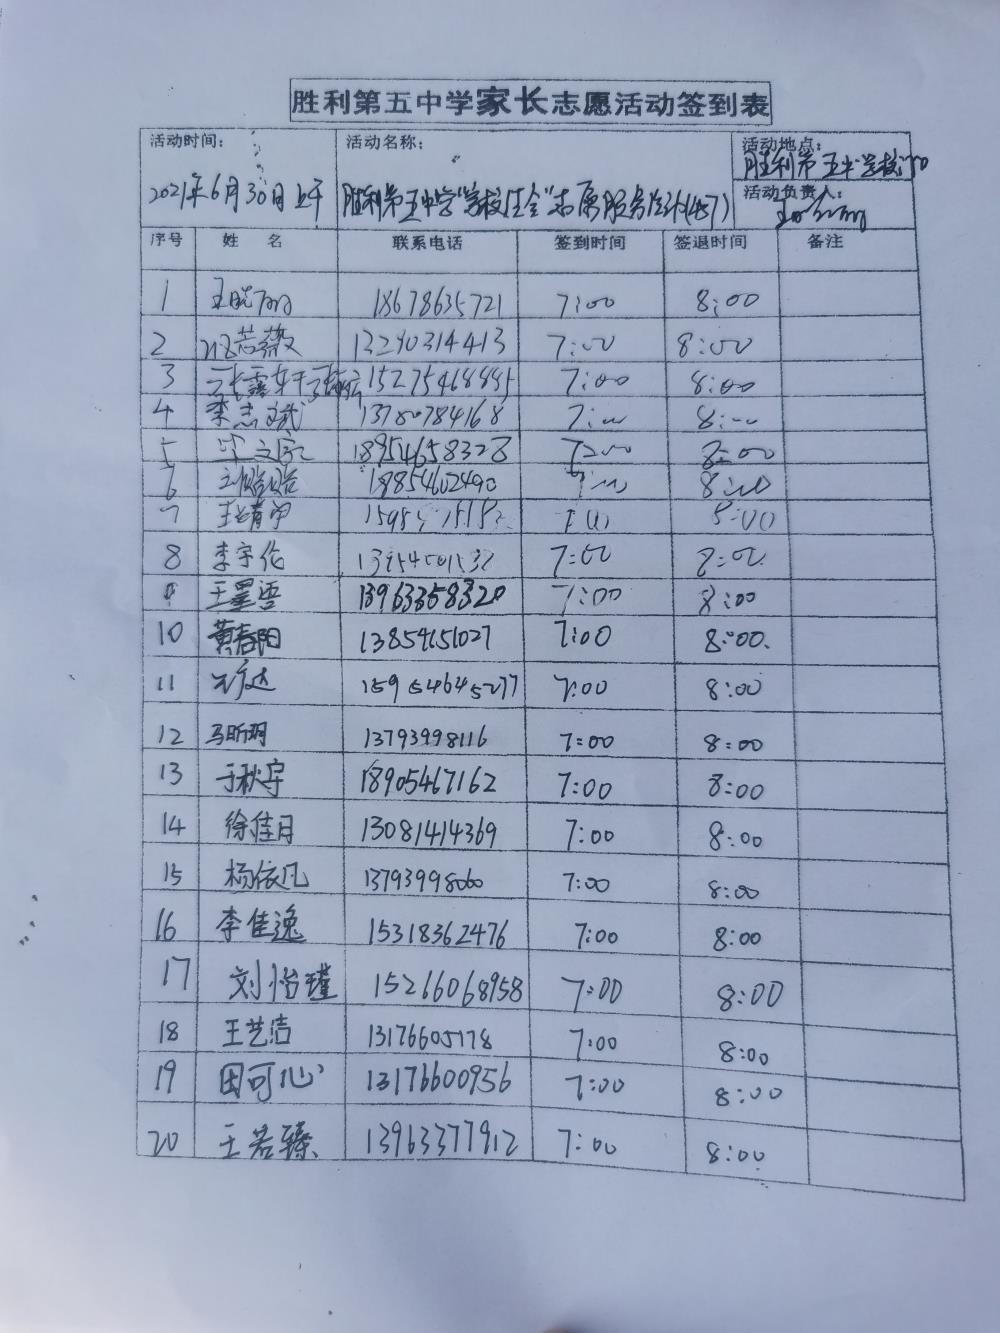 胜利第五中学家长志愿活动签到表
活动时间: 活动名称: 活动地点:
胜利第五中学校门口
2021年6月30日上午 胜利第五中学"学校安全"志愿服务活动(457)
活动负责人:
序号 姓 名 联系电话 签到时间 签退时间 备注
1 18678635721 7:00 8:00
2 若薇 13290314413 7:00 8:00
3 7:00 8:00
4 李志斌 13780784168 7:00 8:00
5 文家 18954658328 7:00 8:00
6 18854602490 8:00
7 8:00
8 李宇伦 7:00 8:00
9 王星语 13963358320 7:00 8:00
10 黄春阳 13854151027 7:00 8:00.
11 15954645277 7:00 8:00
12 马昕玥 13793998116 7:00 8:00
13 于秋宇 18905467162 7:00 8:00
14 徐佳月 13081414369 7:00 8:00
15 杨依凡 13793998060 7:00 8:00
16 李佳逸 15318362476 7:00 8:00
17 刘怡瑾 15266068958 7:00 8:00
18 王艺洁 13176605178 7:00 8:00
19 田可心 13176600956 7:00 8:00
20 王若臻 13963377912 7:00 8:00